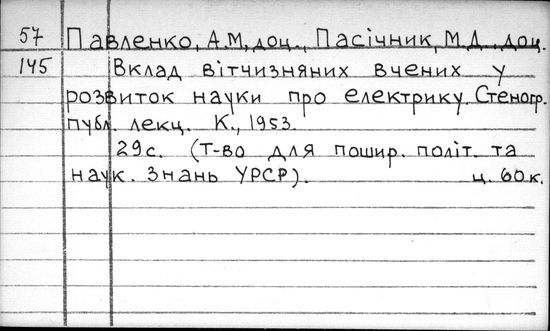 57 Павленко, А.М, доц., Пасічник, М.Д., доц.
145 Вклад вітчизняних вчених у
розвиток науки про електрику. Стеногр.
публ. лекц. К., 1953.
29с. (Т-во для пошир. політ. та
наук. знань УРСР). ц. 60к.